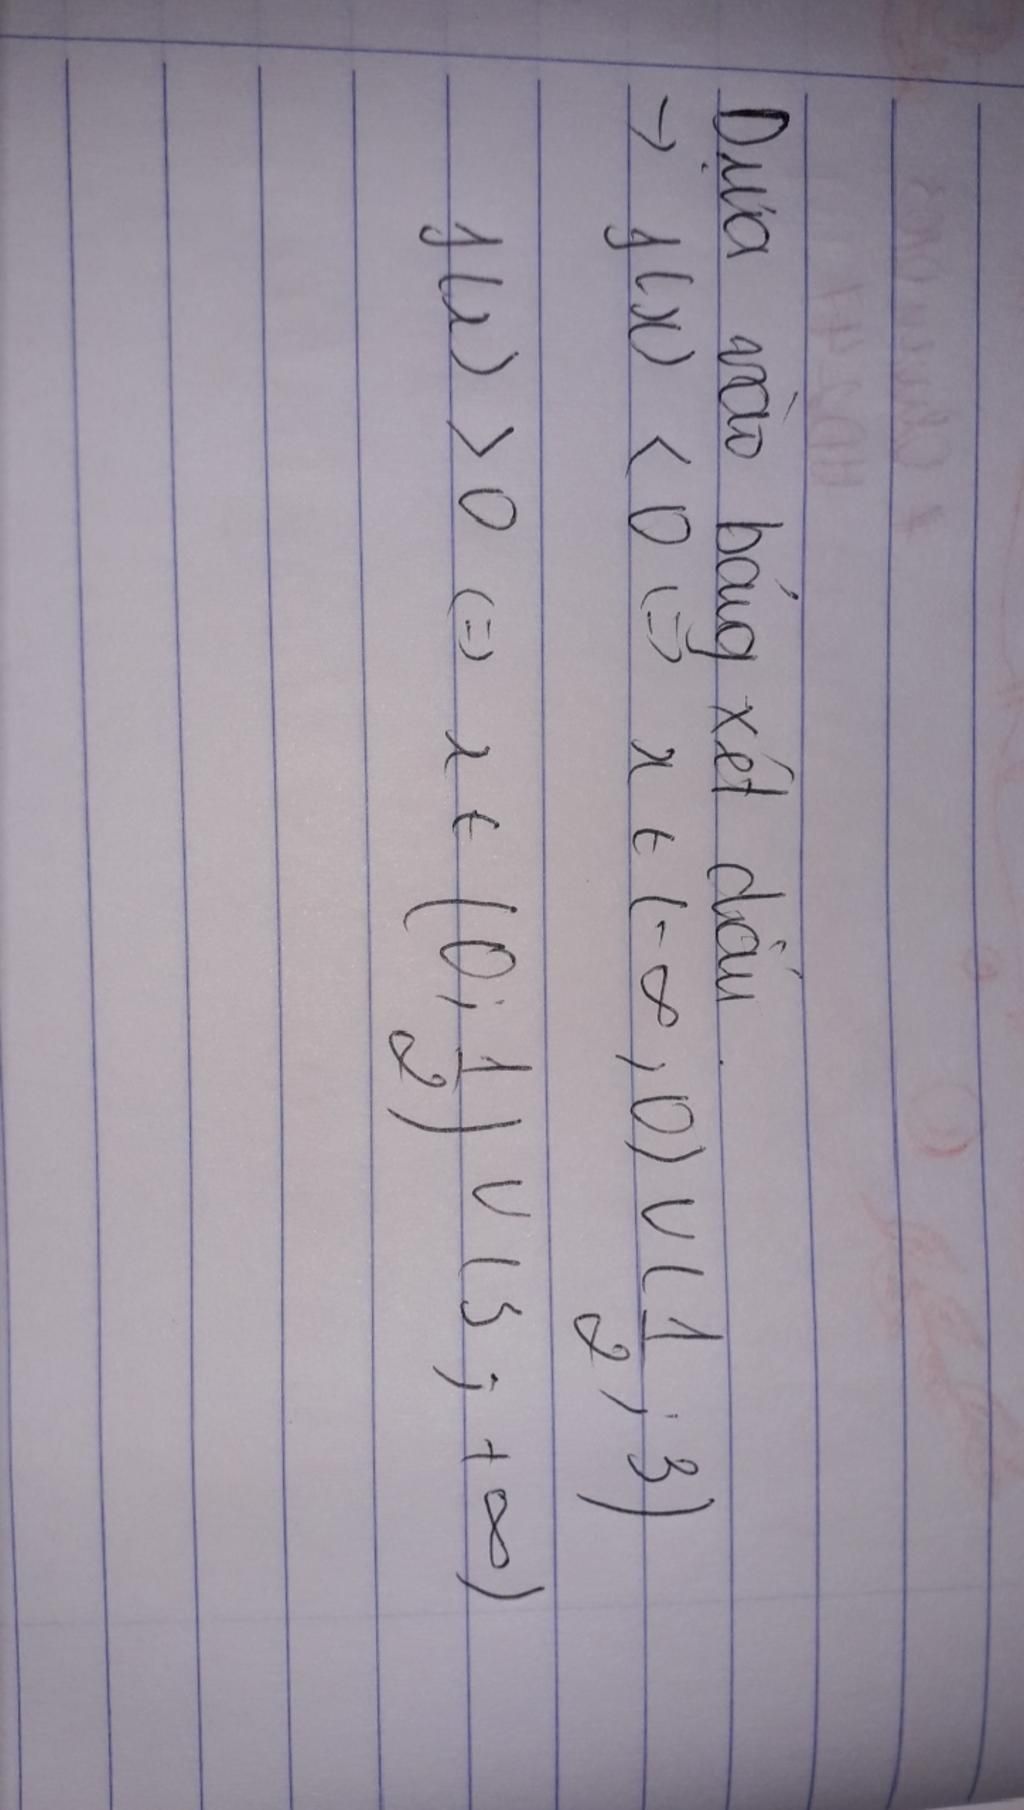 Dựa vào bảng xét dấu.
→ f(x) < 0 (=) x ∈ (-∞; 0) ∪ (1/2; 3)
f(x) > 0 (=) x ∈ (0; 1/2) ∪ (3; +∞)